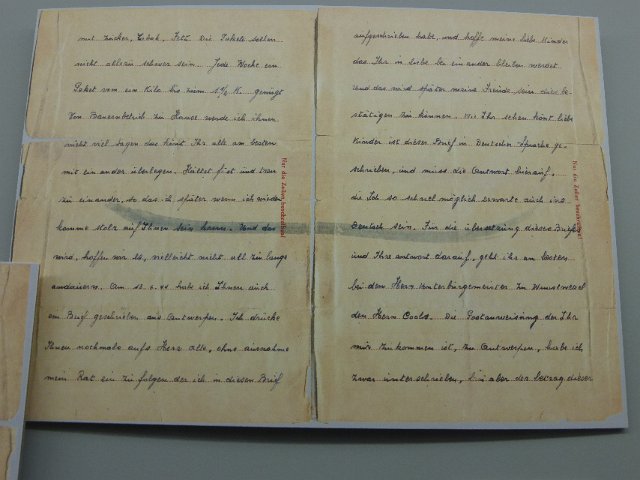 mit Zucker, Tabak, Fett. Die Pakete sollen
nicht allzu schwer sein. Jede Woche ein
Paket von ein Kilo bis zum 1½ K. genügt
Von Bauernbetrieb zu Hause werde ich ihnen
nicht viel sagen das könt Ihr alle am besten
mit ein ander überlegen. Haltet fest und treu
zu einander, so das ich später wenn ich wieder
komme stolz auf Ihnen sein kann. Und das
wird, hoffen wir es, vielleicht nicht all zu lange
andauern. Am 12.6.44 habe ich Ihnen auch
ein Brief geschrieben aus Antwerpen. Ich drücke
Ihnen nochmals aufs Herz alle, ohne ausnahme
mein Rat ein zu folgen der ich in diesen Brief
Nur die Zeilen beschreiben!
aufgeschrieben habe, und hoffe meine liebe Kinder
das Ihr in liebe bei ein ander bleiben werdet
und das wird später meine Freude sein dies be-
stätigen zu können. Wie Ihr sehen könt liebe
Kinder ist dieser Brief in Deutscher Sprache ge-
schrieben, und muss die Antwort hierauf,
die Ich so schnel möglich erwarte auch ins
Deutsch sein. Für die übersetzung dieses Briefs
und Ihre antwort darauf, geht ihr am besten
bei dem Herrn unterbürgemeister zu
den Herrn Cools. Die Postanweisung der Ihr
mir zu kommen ist, zu Antwerpen, habe ich
zwar unterschrieben, bin aber der betrag dieser
Nur die Zeilen beschreiben!